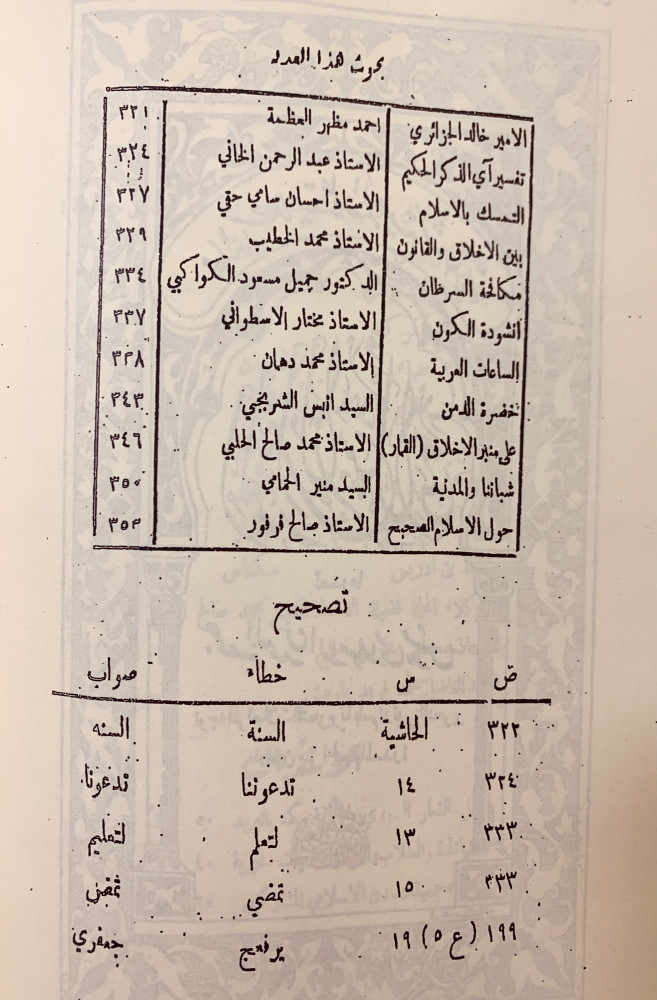 بحوث هذا العدد
الامير خالد الجزائري احمد مظهر العظمة ٣٢١
تفسير آي الذكر الحكيم الاستاذ عبد الرحمن الخاني ٣٢٤
التمسك بالاسلام الاستاذ احسان سامي حقي ٣٢٧
بين الاخلاق والقانون الاستاذ محمد الخطيب ٣٢٩
مكافحة السرطان الدكتور جميل مسعود الكواكبي ٣٣٤
انشودة الكون الاستاذ مختار الاسطواني ٣٣٧
الساعات العربية الاستاذ محمد دهمان ٣٣٨
خضرة الدمن السيد انيس الشربجي ٣٤٣
على منبر الاخلاق (القمار) الاستاذ محمد صالح الحلبي ٣٤٦
شباننا والمدنية السيد منير الحمامي ٣٥٠
حول الاسلام الصحيح الاستاذ صالح فرفور ٣٥٣
تصحيح
ص س خطاء صواب
٣٢٢ الحاشية السنة السنه
٣٢٤ ١٤ تدعوننا تدعونا
٣٣٣ ١٣ لتعلم لتعليم
٣٣٣ ١٥ تمضي
١٩٩ (ع ٥) ١٩ يرفعج جعفري